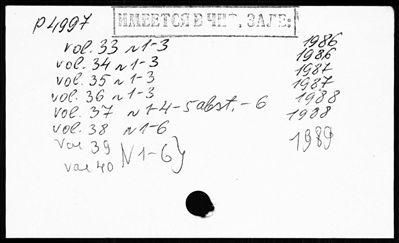 P4997
ИМЕЕТСЯ В ЧИТ. ЗАЛЕ:
vol. 33 N 1-3 1986
vol. 34 N 1-3 1986
vol. 35 N 1-3 1987
vol. 36 N 1-3 1987
vol. 37 N 1-4-5abst. - 6 1988
vol. 38 N 1-6 1988
vol 39 N 1-6} 1989
vol 40